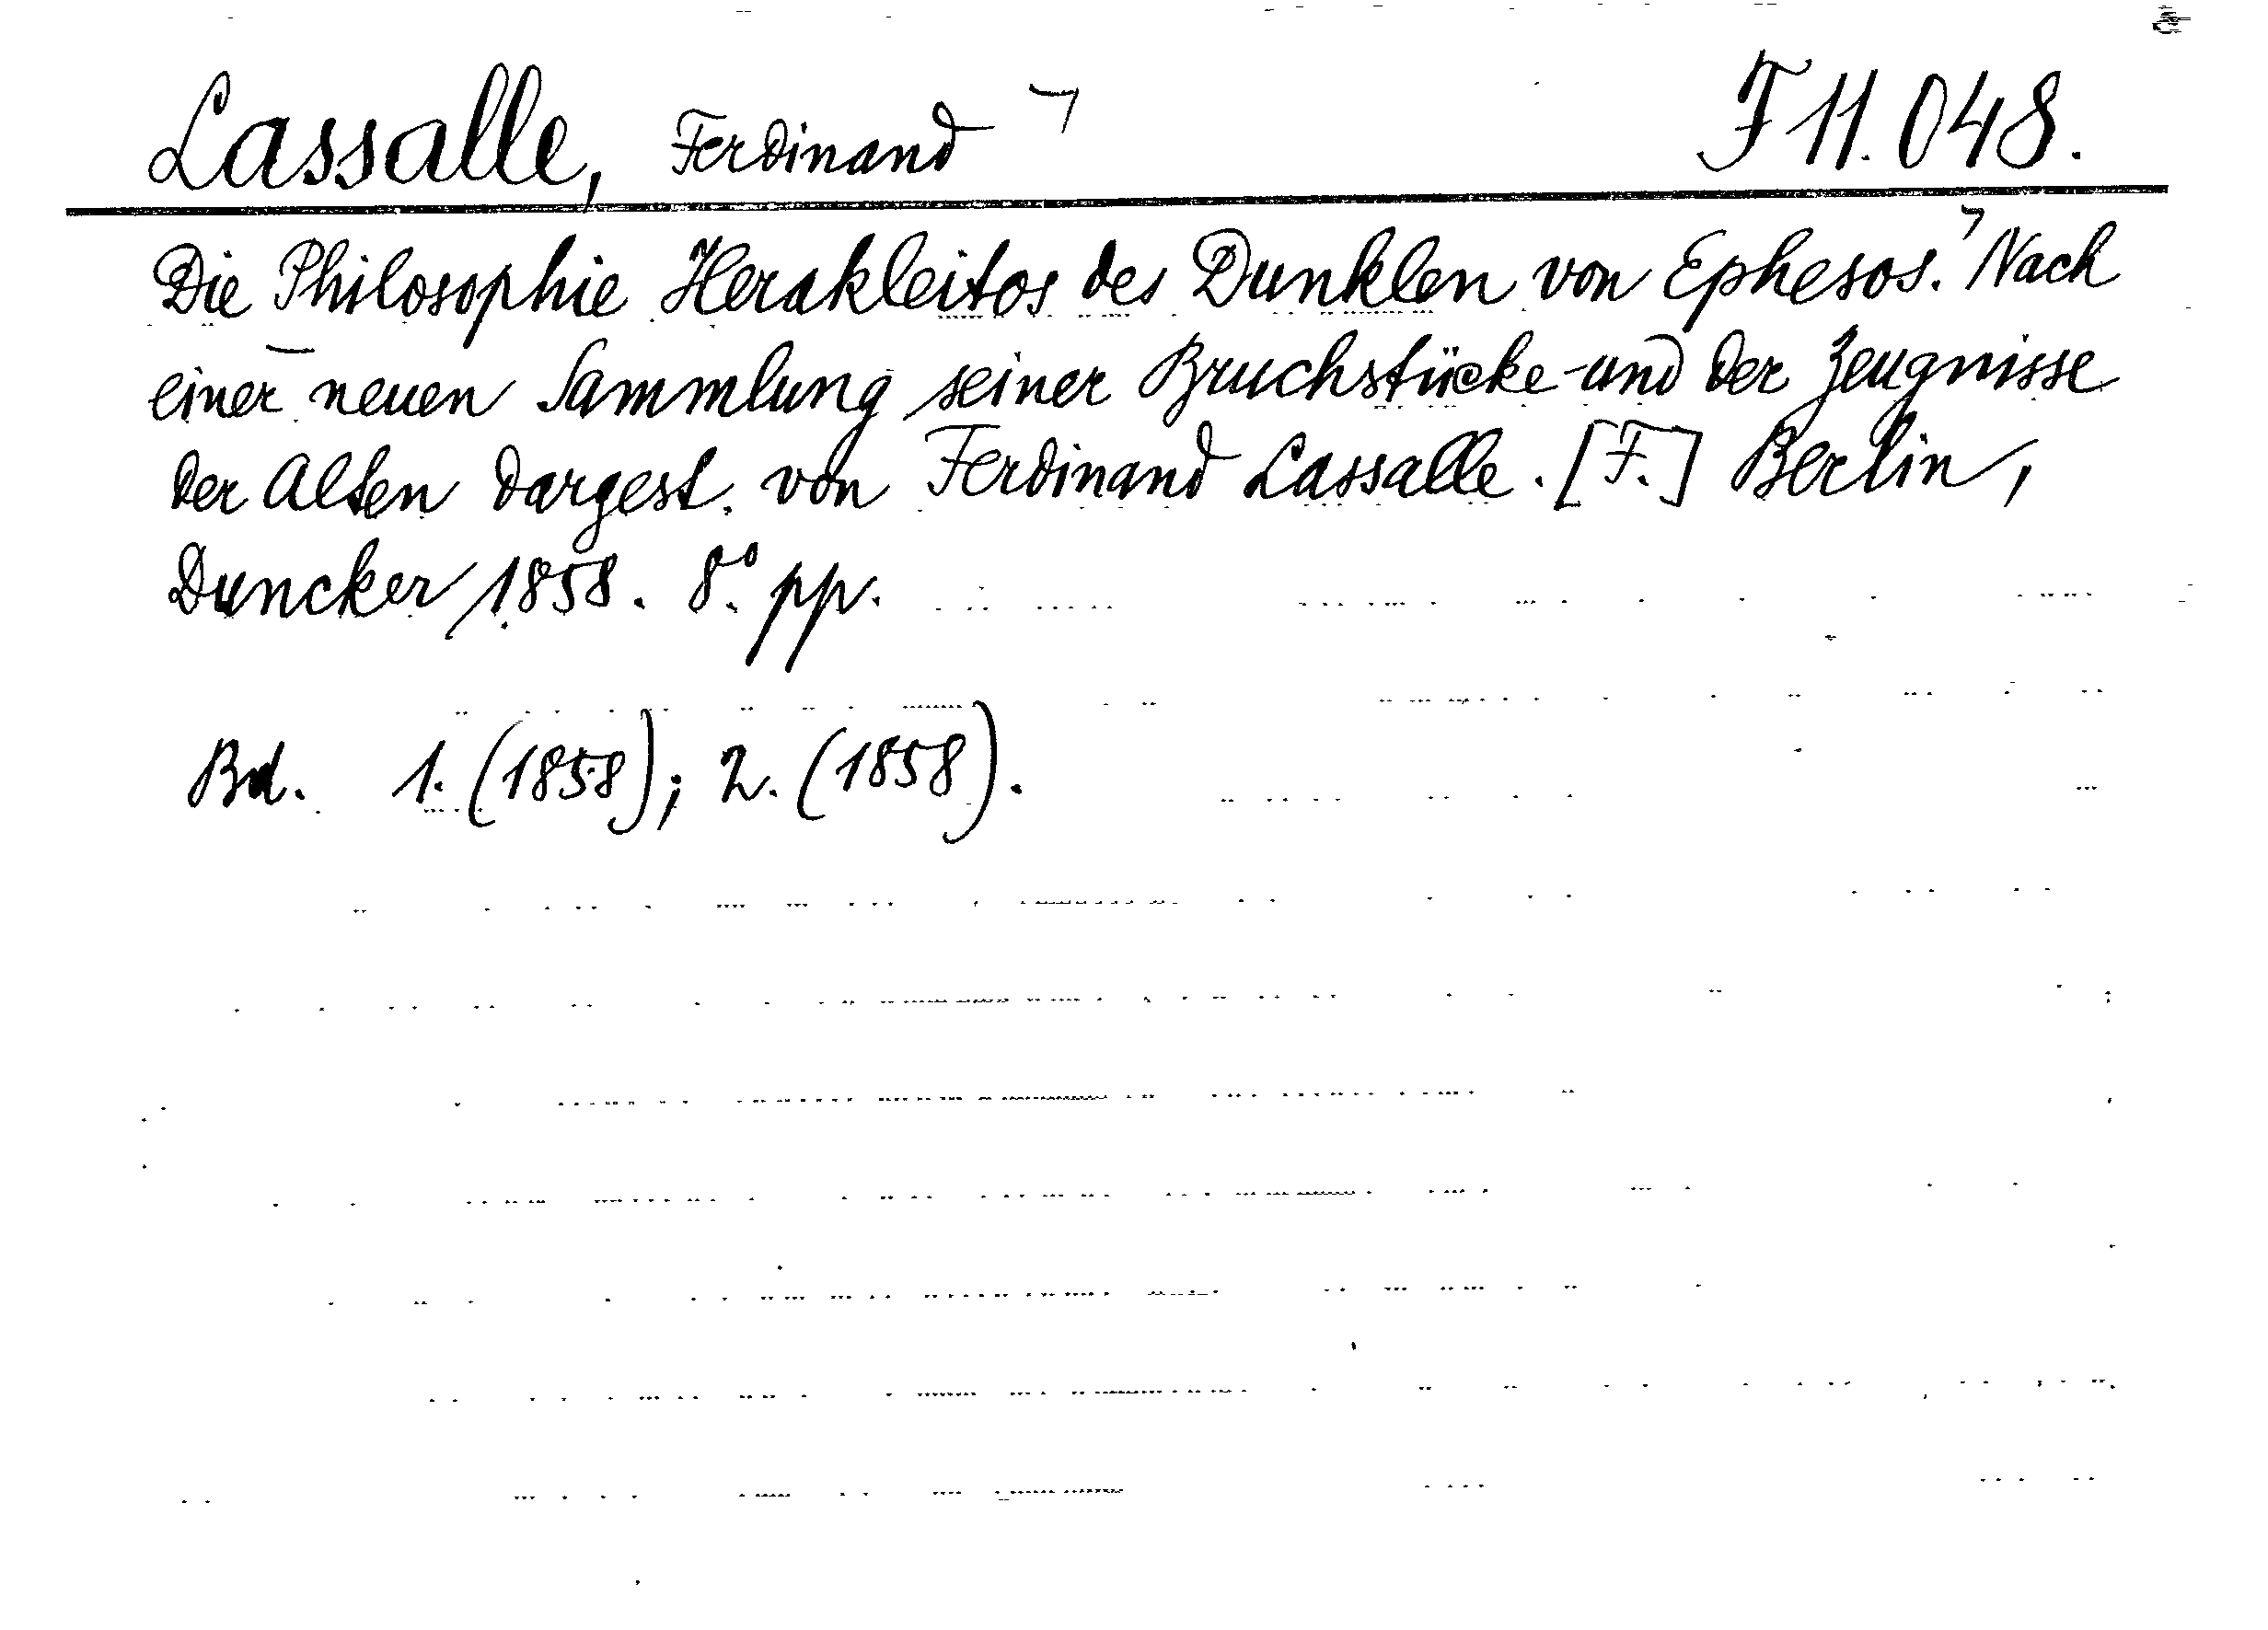 Lassalle, Ferdinand F 11.048.
Die Philosophie Herakleitos des Dunklen von Ephesos. Nach
einer neuen Sammlung seiner Bruchstücke und der Zeugnisse
der Alten dargest. von Ferdinand Lassalle. [F.] Berlin,
Duncker 1858. 8° pp.
Bd. 1. (1858); 2. (1858).